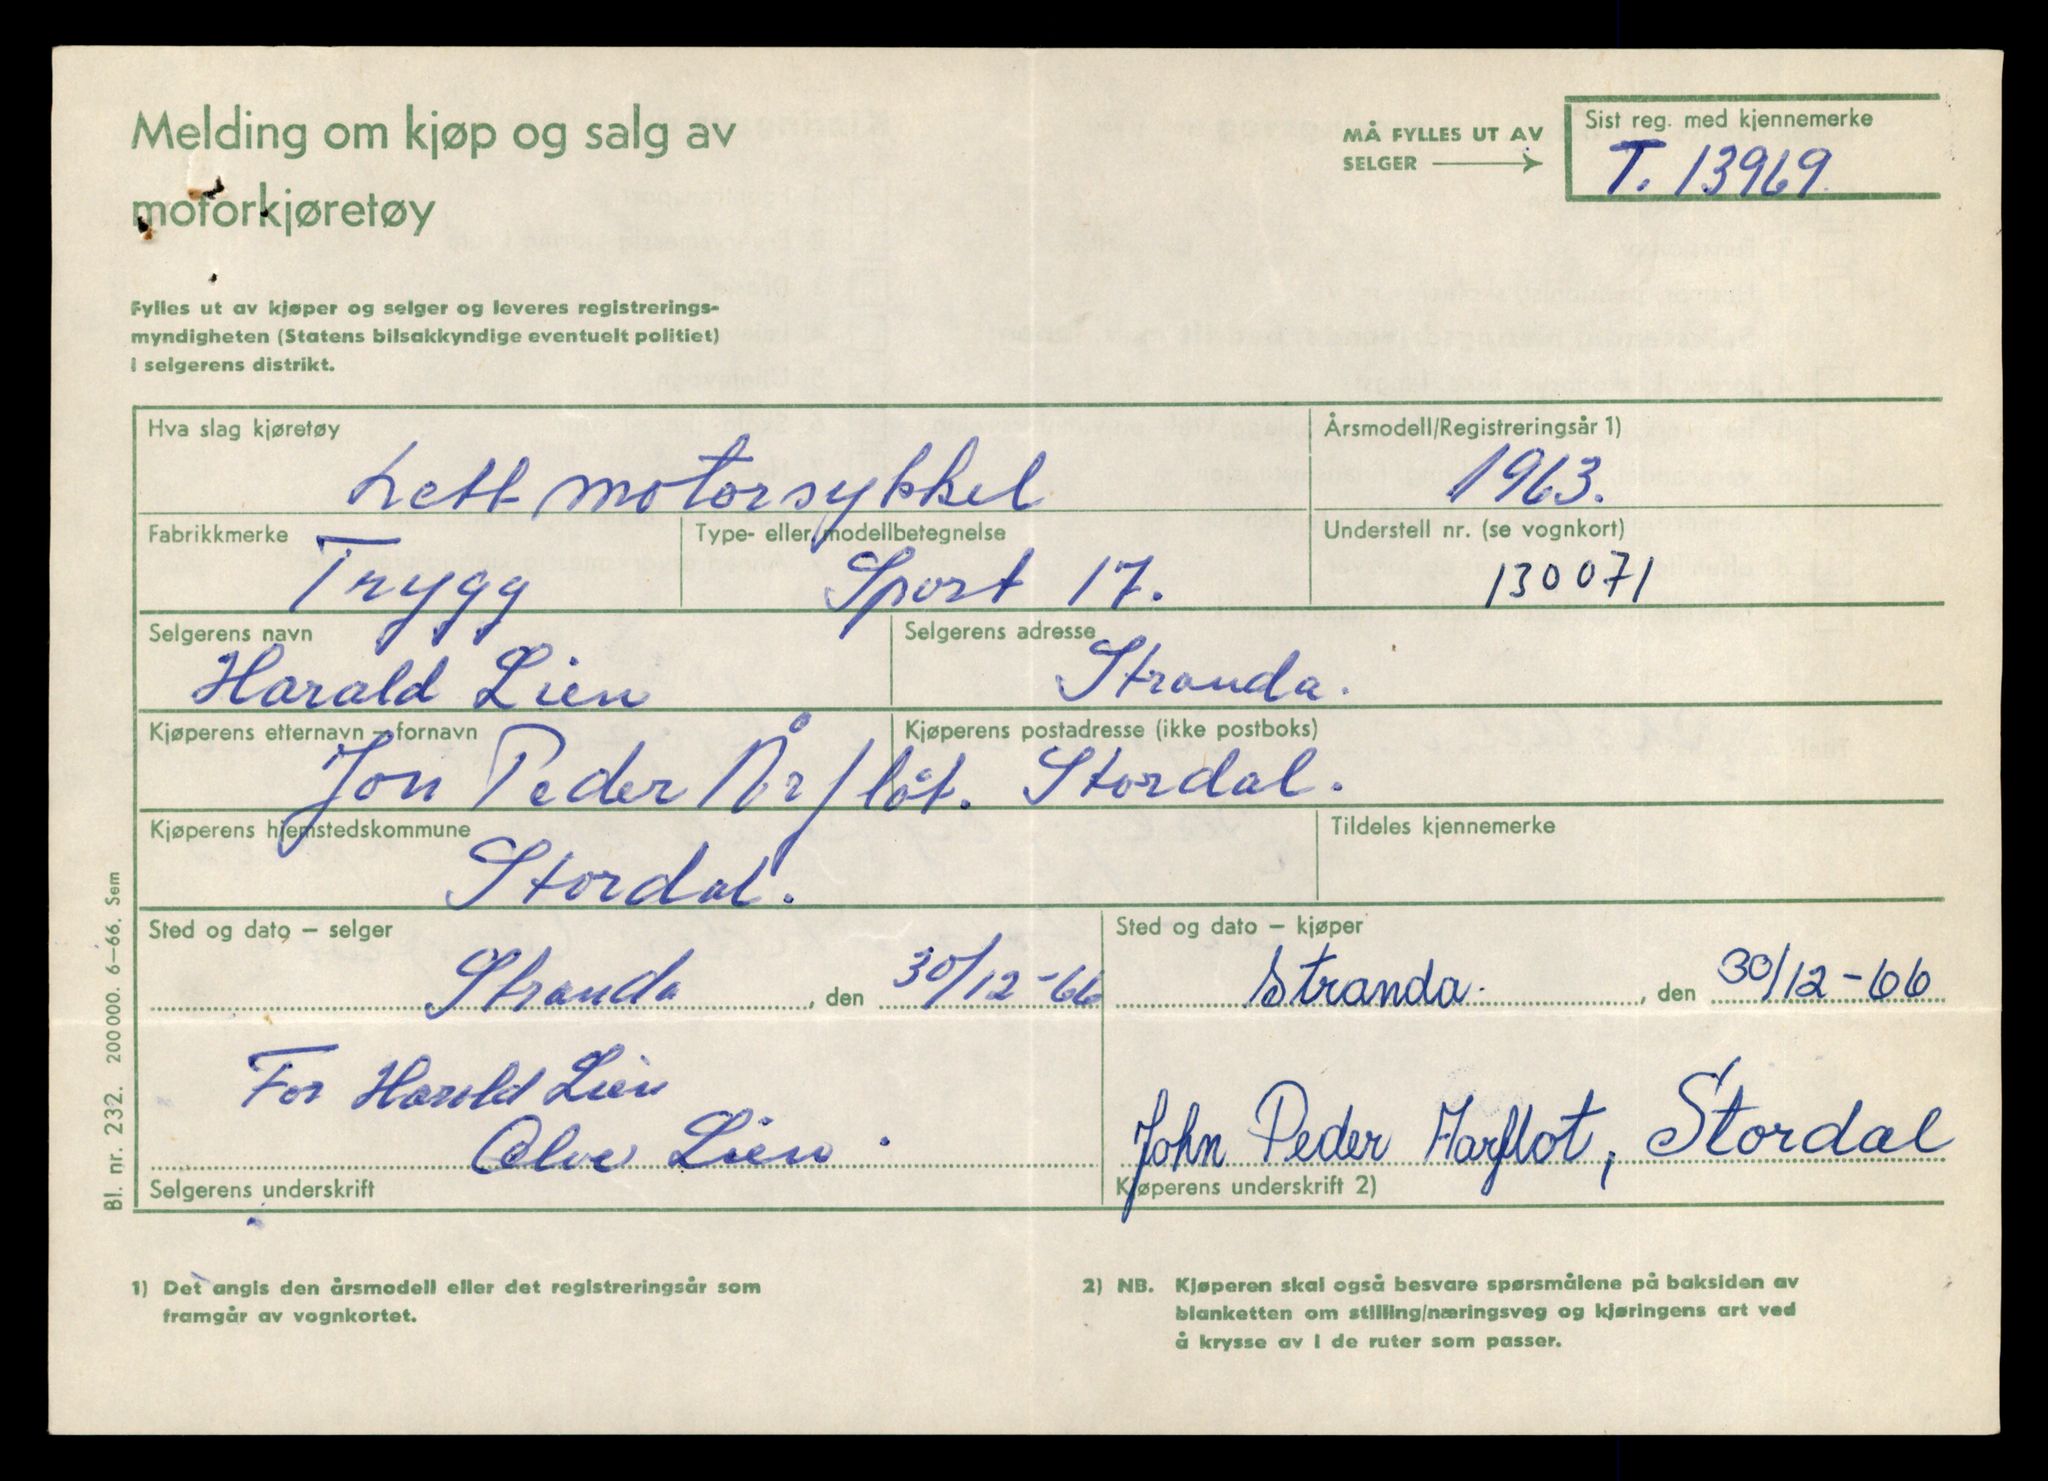 Melding om kjøp og salg av
motorkjøretøy
MÅ FYLLES UT AV
SELGER
Sist reg. med kjennemerke
T. 13969.
Fylles ut av kjøper og selger og leveres registrerings-
myndigheten (Statens bilsakkyndige eventuelt politiet)
i selgerens distrikt.
Hva slag kjøretøy
Lett motorsykkel
Årsmodell/Registreringsår 1)
1963.
Fabrikkmerke
Trygg
Type- eller modellbetegnelse
Sport 17.
Understell nr. (se vognkort)
130071
Selgerens navn
Harald Lien
Selgerens adresse
Stranda.
Kjøperens etternavn – fornavn
Jon Peder Årflot.
Kjøperens postadresse (ikke postboks)
Stordal.
Kjøperens hjemstedskommune
Stordal.
Tildeles kjennemerke
Sted og dato – selger
Stranda, den 30/12-66
Sted og dato – kjøper
Stranda., den 30/12-66
For Harald Lien
Olve Lien.
Selgerens underskrift
John Peder Aarflot, Stordal
Kjøperens underskrift 2)
Bl. nr. 232. 200 000. 6–66. Sem
1) Det angis den årsmodell eller det registreringsår som
framgår av vognkortet.
2) NB. Kjøperen skal også besvare spørsmålene på baksiden av
blanketten om stilling/næringsveg og kjøringens art ved
å krysse av i de ruter som passer.